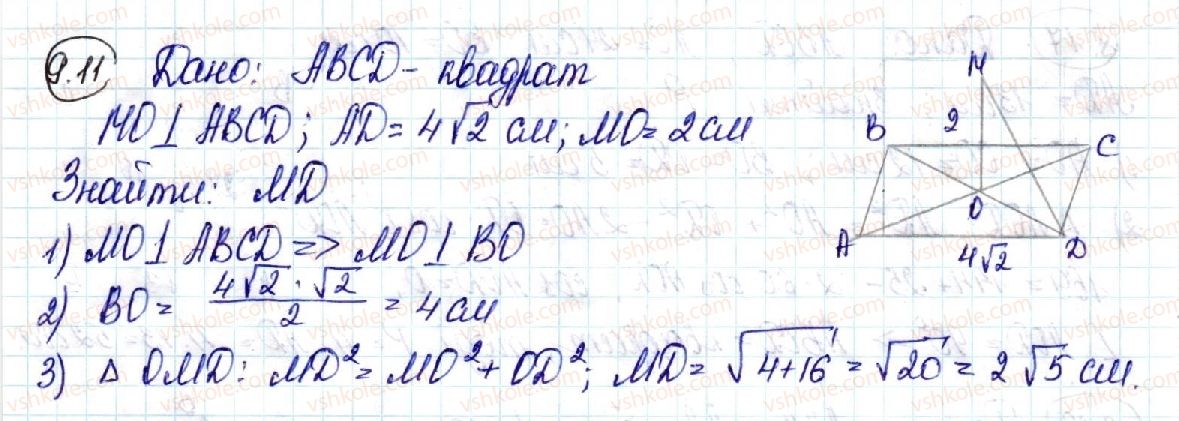 9.11 Дано: ABCD - квадрат
MO ⊥ ABCD; AD = 4√2 см; MO = 2 см
Знайти: MD
1) MO ⊥ ABCD => MO ⊥ BO
2) BO = (4√2 · √2)/2 = 4 см
3) Δ OMD: MD² = MO² + OD²; MD = √(4+16) = √20 = 2√5 см.
M
B 2 C
O
A 4√2 D